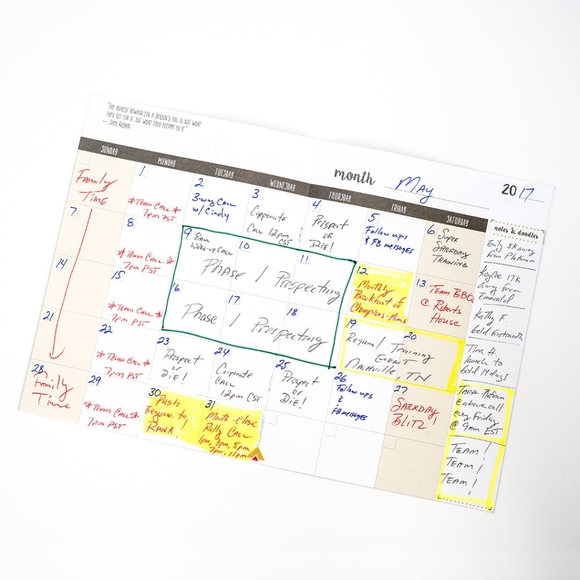 "THE HIGHEST REWARD FOR A PERSON'S TOIL IS NOT WHAT
THEY GET FOR IT, BUT WHAT THEY BECOME BY IT."
-- JOHN RUSKIN
month May 2017
SUNDAY MONDAY TUESDAY WEDNESDAY THURSDAY FRIDAY SATURDAY
notes & doodles
Family
Time
1
*Team Call*
7pm PST
2
3-way Call
w/ Cindy
3
Corporate
Call 12pm
CST
4
Prospect
or
DIE!
5
Follow ups
& FB messages
6
Super
Saturday
Training
7
8
*Team Call*
7pm PST
9 8am
Wake up Call
10
11
Phase 1 Prospecting
12
Monthly
Breakfast of
Champions
13
Team BBQ
@ Roberts
House
14
15
*Team Call*
7pm PST
16
17
18
Phase 1 Prospecting
19
20
Regional Training
Event
Nashville, TN
21
22
*Team Call*
7pm PST
23
Prospect
or
DIE!
24
Corporate
Call
12pm CST
25
Prospect
or
DIE!
26
Follow ups
&
FB messages
27
Saturday
BLITZ!
28
Family
Time
29
*Team Call*
7pm PST
30
Push
Everyone to
Rank!
31
Month-Close
Rally Call
1pm, 3pm, 5pm
7pm, 11pm
Emily 5K away
from Platinum
Kaylee 17K
away from
Emerald
Kathy F.
Gold
Tina H.
launch to
Gold
@ above call
every Friday
@ 9am EST
TEAM!
TEAM!
TEAM!